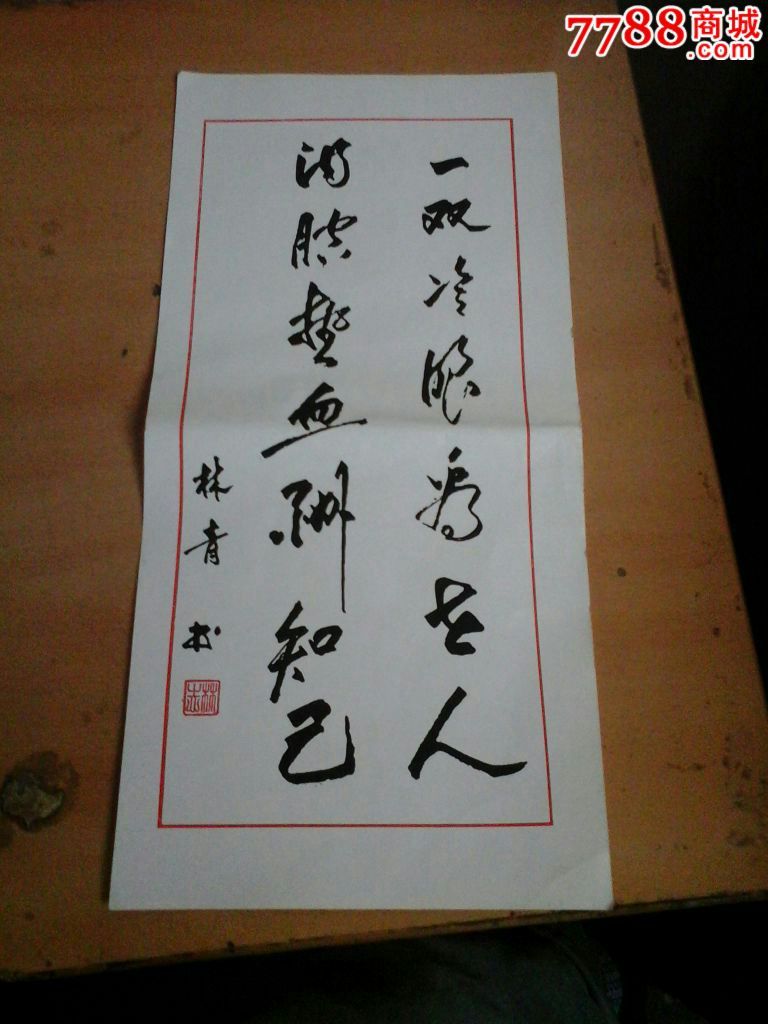 7788商城
.com
一双冷眼看世人
满腔热血酬知己
林青书